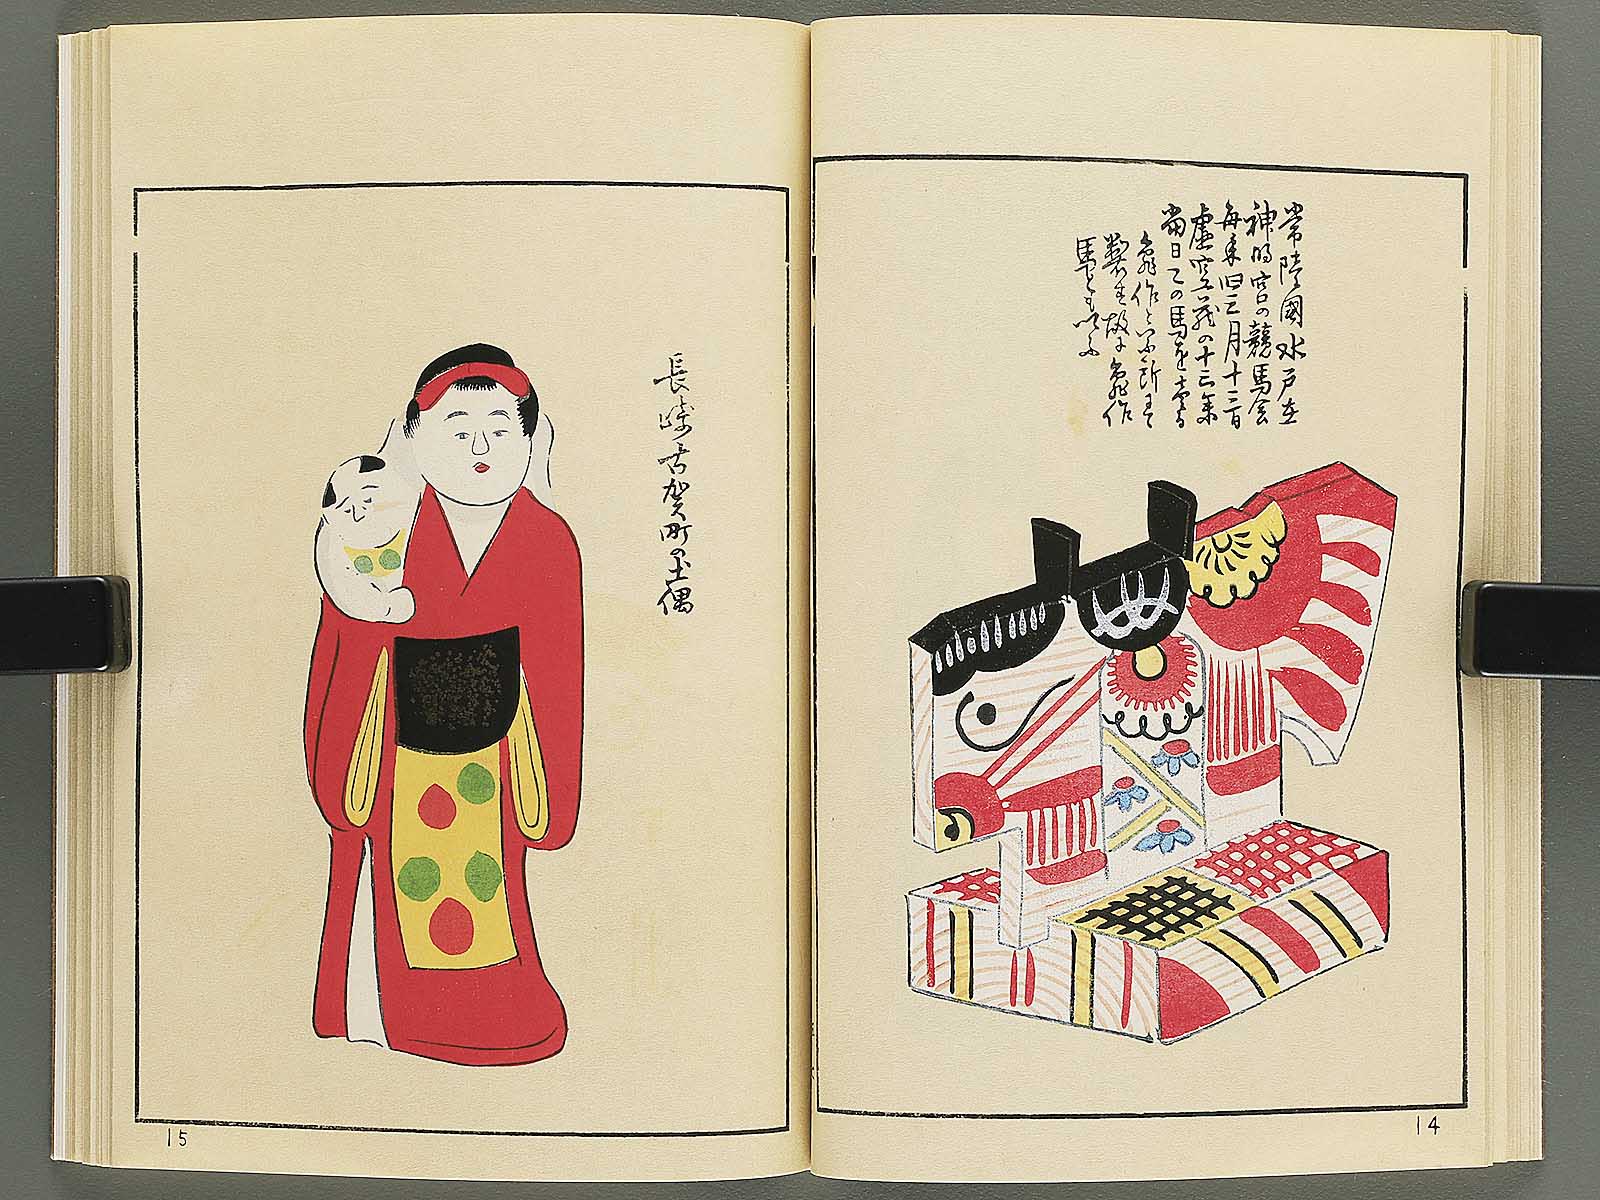 常陸國水戸在
神明宮の競馬会
毎年旧三月十三日
虚空蔵の十三
當日この馬を売る
亀作といふ所にて
製す故に亀作
馬ともいふ
14
長崎古賀町の土偶
15